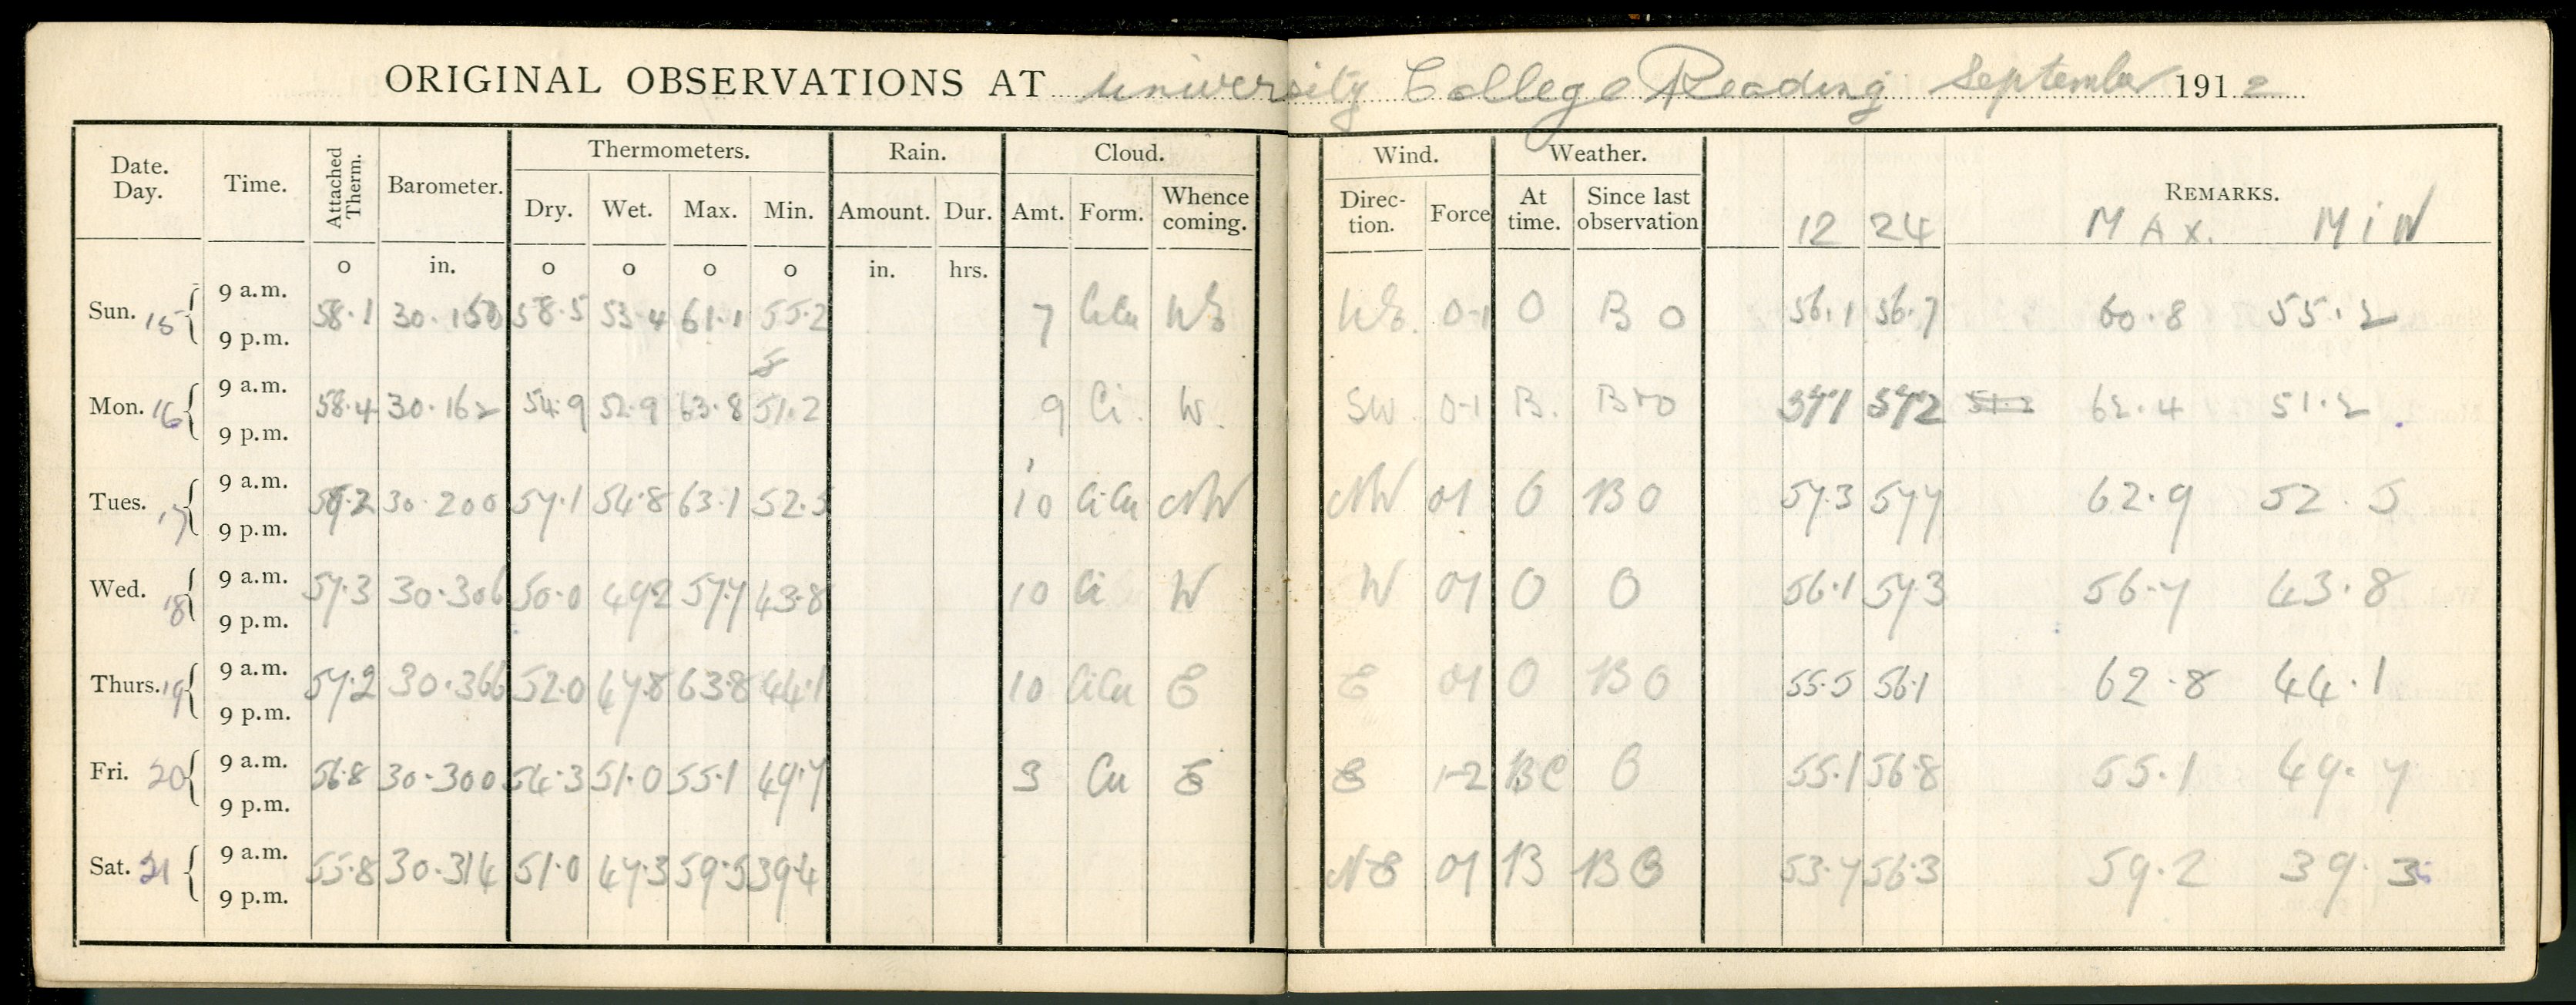 ORIGINAL OBSERVATIONS AT University College Reading September 1912
Date. Day. Time. Attached Therm. Barometer. Thermometers. Rain. Cloud. Wind. Weather. REMARKS.
Dry. Wet. Max. Min. Amount. Dur. Amt. Form. Whence coming. Direc- tion. Force At time. Since last observation 12 24 MAX. MIN
o in. o o o o in. hrs.
Sun. 15 9 a.m. 58.1 30.150 58.5 53.4 61.1 55.2 7 CiCu 0-1 O B O 56.1 56.7 60.8 55.2
9 p.m.
Mon. 16 9 a.m. 58.4 30.162 54.9 52.9 63.8 51.2 9 Ci. W. SW. 0-1 B. 57.1 57.2 62.4 51.2
9 p.m.
Tues. 17 9 a.m. 30.200 57.1 54.8 63.1 52.5 10 CiCu NW NW 01 O B O 57.3 577 62.9 52.5
9 p.m.
Wed. 18 9 a.m. 57.3 30.306 50.0 492 57.7 43.8 10 Ci W W 01 O O 56.1 57.3 56.7 43.8
9 p.m.
Thurs. 19 9 a.m. 57.2 30.366 52.0 47.8 63.8 44.1 10 CiCu E E 01 O B O 55.5 56.1 62.8 44.1
9 p.m.
Fri. 20 9 a.m. 56.8 30.300 54.3 51.0 55.1 49.7 3 Cu E E 1-2 BC O 55.1 56.8 55.1 49.7
9 p.m.
Sat. 21 9 a.m. 55.8 30.314 51.0 47.3 59.5 39.4 N E 01 B B 53.7 56.3 59.2 39.3
9 p.m.